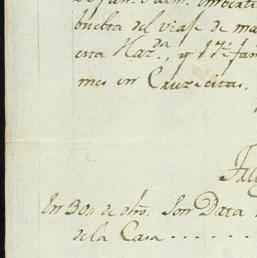 buelta del viaje de ma
esta Haz.da, y 17 fan
mes en Cruzecitas.
En 30 de dho. Son Data
de la Casa